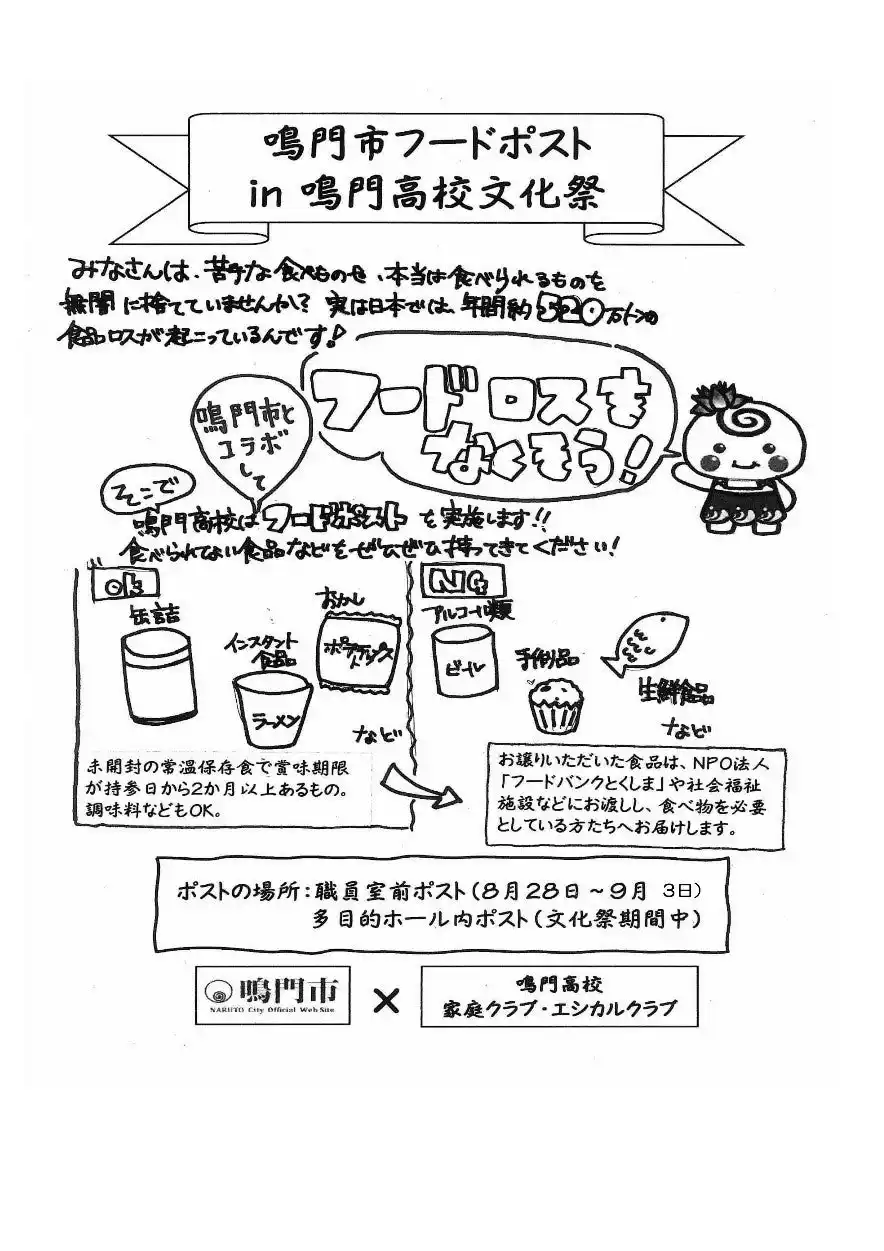 鳴門市フードポスト
in 鳴門高校文化祭
みなさんは、苦手な食べものせ、本当は食べられるものを
無闇に捨てていませんか？ 実は日本では、年間約520万トンの
食品ロスが起こっているんです！
フードロスを
なくそう！
鳴門市と
コラボ
して
そこで
鳴門高校はフードポストを実施します!!
食べられない食品などをぜひぜひ持ってきてください！
OK
缶詰
インスタント
食品
ラーメン
おかし
ポテトチップス
など
未開封の常温保存食で賞味期限
が持参日から2か月以上あるもの。
調味料などもOK。
NG
アルコール類
ビール
手作り品
生鮮食品
など
お譲りいただいた食品は、NPO法人
「フードバンクとくしま」や社会福祉
施設などにお渡しし、食べ物を必要
としている方たちへお届けします。
ポストの場所：職員室前ポスト（8月28日～9月 3日）
多目的ホール内ポスト（文化祭期間中）
鳴門市
NARUTO City Official Web Site
×
鳴門高校
家庭クラブ・エシカルクラブ